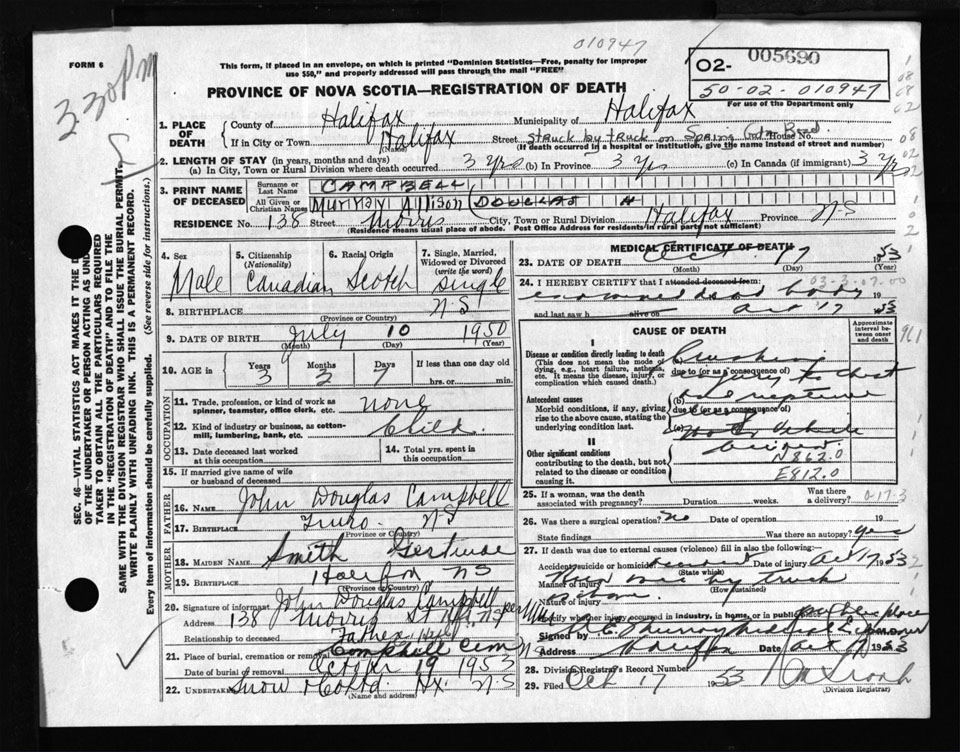 010947
FORM 6
This form, if placed in an envelope, on which is printed "Dominion Statistics—Free, penalty for improper
use $50," and properly addressed will pass through the mail "FREE"
005690
O2-
50-02-010947
For use of the Department only
3.30 Pm
PROVINCE OF NOVA SCOTIA—REGISTRATION OF DEATH
1. PLACE OF DEATH
County of Halifax Municipality of Halifax
If in City or Town Halifax Street struck by truck on Spring Gdn Road. House No.
(Name)
(If death occurred in a hospital or institution, give the name instead of street and number)
2. LENGTH OF STAY (in years, months and days)
(a) In City, Town or Rural Division where death occurred 3 yrs (b) In Province 3 yrs (c) In Canada (if immigrant) 3 yrs
3. PRINT NAME OF DECEASED
Surname or Last Name CAMPBELL
All Given or Christian Names Murray Allison DOUGLAS H
RESIDENCE No. 138 Street Morris City, Town or Rural Division Halifax Province N.S
(Residence means usual place of abode. Post Office Address for residents in rural parts not sufficient)
SEC. 46—VITAL STATISTICS ACT MAKES IT THE D
OF THE UNDERTAKER OR PERSON ACTING AS UND
TAKER TO OBTAIN ALL THE PARTICULARS REQUIRED
IN THE "REGISTRATION OF DEATH" AND TO FILE THE
SAME WITH THE DIVISION REGISTRAR WHO SHALL ISSUE THE BURIAL PERMIT.
WRITE PLAINLY WITH UNFADING INK. THIS IS A PERMANENT RECORD.
Every item of information should be carefully supplied. (See reverse side for instructions.)
4. Sex
Male
5. Citizenship (Nationality)
Canadian
6. Racial Origin
Scotch
7. Single, Married, Widowed or Divorced (write the word)
Single
8. BIRTHPLACE N.S
(Province or Country)
9. DATE OF BIRTH July 10 1950
(Month) (Day) (Year)
10. AGE in
Years 3 Months 3 Days 7 If less than one day old
hrs. or min.
OCCUPATION
11. Trade, profession, or kind of work as spinner, teamster, office clerk, etc. none
12. Kind of industry or business, as cotton-mill, lumbering, bank, etc. Child.
13. Date deceased last worked at this occupation
14. Total yrs. spent in this occupation
15. If married give name of wife or husband of deceased
FATHER
16. Name John Douglas Campbell
17. Birthplace Truro. N.S
(Province or Country)
MOTHER
18. Maiden Name Smith Gertrude
19. Birthplace Halifax NS
(Province or Country)
20. Signature of informant John Douglas Campbell
Address 138 Morris St Hfx, N.S
Relationship to deceased Father
21. Place of burial, cremation or removal Camphill Cem N.S
Date of burial or removal October 19 1953
22. Undertaker Snow & Co Ltd Hx. N.S
(Name and address)
MEDICAL CERTIFICATE OF DEATH
23. DATE OF DEATH Oct. 17 1953
(Month) (Day) (Year)
24. I HEREBY CERTIFY that I attended deceased from:
03-3-07-00
examined dead body 19
and last saw h alive on Oct 17 1953
CAUSE OF DEATH
Approximate interval between onset and death
961
I
Disease or condition directly leading to death
(This does not mean the mode of dying, e.g., heart failure, asthenia, etc. It means the disease, injury, or complication which caused death.)
(a) Crushing
due to (or as a consequence of)
injury to chest
Antecedent causes
Morbid conditions, if any, giving rise to the above cause, stating the underlying condition last.
(b)
due to (or as a consequence of)
(c) Motor Vehicle
II
Other significant conditions
contributing to the death, but not related to the disease or condition causing it.
N862.0
E812.0
25. If a woman, was the death associated with pregnancy? Duration weeks. Was there a delivery?
0-17-3
26. Was there a surgical operation? no Date of operation 19
State findings Was there an autopsy? yes
27. If death was due to external causes (violence) fill in also the following:
Accident, suicide or homicide accident Date of injury Oct 17 1953
(State which)
Manner of injury run over by truck
(How sustained)
Nature of injury above
Specify whether injury occurred in industry, in home, or in public place public place
Signed by
Address Halifax Date Oct 17 1953
28. Division Registrar's Record Number
29. Filed Oct 17 1953
(Division Registrar)